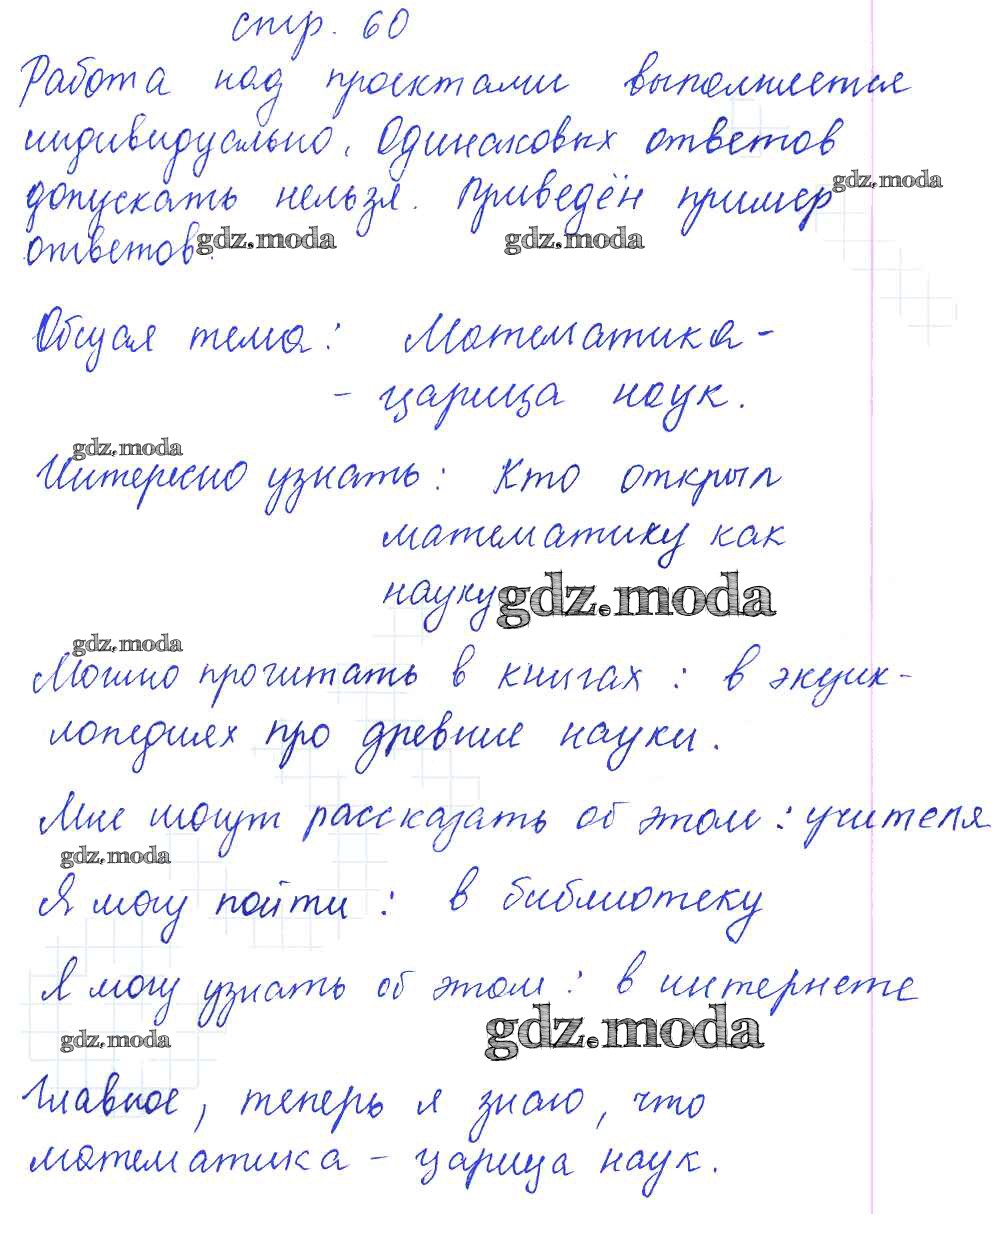 стр. 60
Работа над проектами выполняется
индивидуально. Одинаковых ответов
gdz.moda
допускать нельзя. Приведён пример
ответов. gdz.moda gdz.moda
Общая тема: Математика -
- царица наук.
gdz.moda
Интересно узнать: Кто открыл
математику как
науку gdz.moda
gdz.moda
Можно прочитать в книгах: в энцик-
лопедиях про древние науки.
Мне могут рассказать об этом: учителя
gdz.moda
Я могу пойти: в библиотеку
Я могу узнать об этом: в интернете
gdz.moda gdz.moda
Главное, теперь я знаю, что
математика - царица наук.